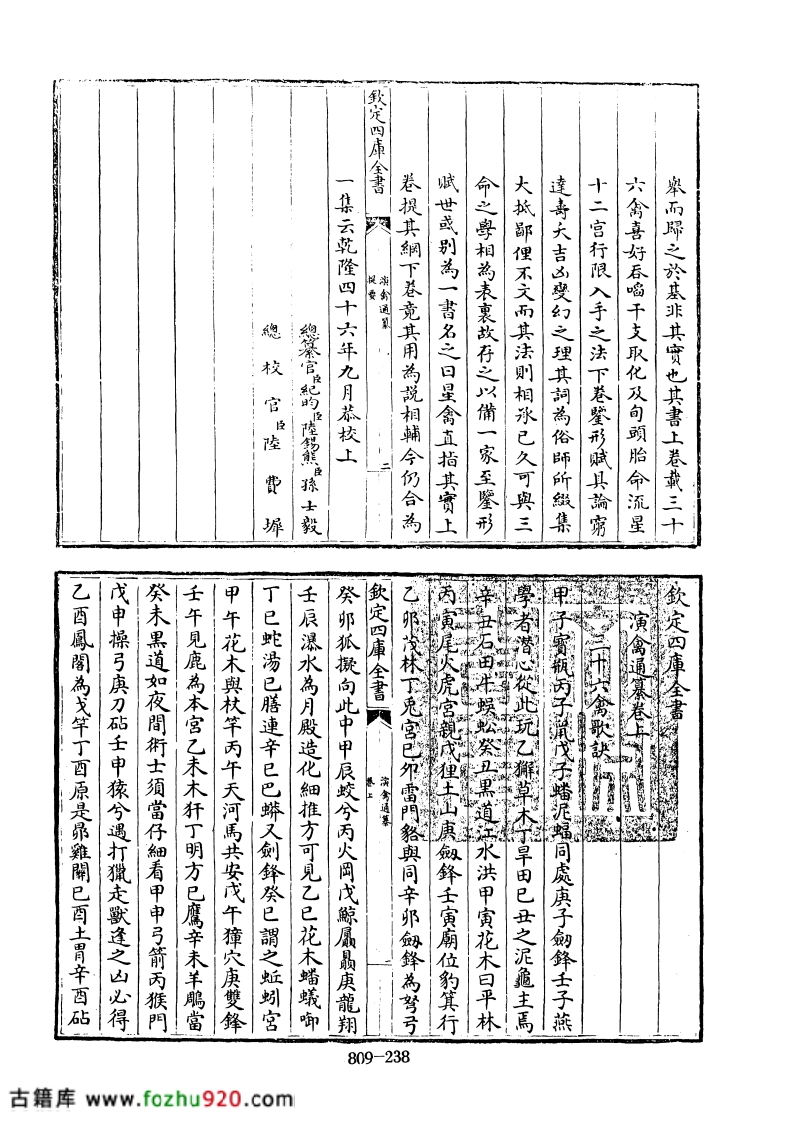 舉而歸之於基非其實也其書上卷載三十
六禽喜好吞啗干支取化及旬頭胎命流星
十二宮行限入手之法下卷鑒形賦具論窮
達壽夭吉凶變幻之理其詞為俗師所綴集
大抵鄙俚不文而其法則相承已久可與三
命之學相為表裏故存之以備一家至鑒形
賦世或别為一書名之曰星禽直指其實上
卷提其綱下卷竟其用為説相輔今仍合為
欽定四庫全書
演禽通纂
提要
二
一集云乾隆四十六年九月恭校上
總纂官臣紀昀臣陸錫熊臣孫士毅
總校官臣陸費墀
欽定四庫全書
演禽通纂卷上
三十六禽歌訣
甲子寳瓶丙子鼠戊子蟠泥蝠同處庚子劔鋒壬子燕
學者潛心從此玩乙獬草木丁旱田巳丑之泥龜主焉
辛丑石田牛蜈蚣癸丑黒道江水洪甲寅花木曰平林
丙寅尾火虎宫親戊狸土山庚劔鋒壬寅廟位豹箕行
乙卯茂林丁兎宮巳夘雷門貉與同辛卯劔鋒為弩弓
欽定四庫全書
演禽通纂
卷上
一
癸卯狐擬向此中甲辰蛟兮丙火岡戊鯨贔屭庚龍翔
壬辰瀑水為月殿造化細推方可見乙巳花木蟠蟻㗸
丁巳蛇湯巳膳連辛巳巴蟒又劍鋒癸巳謂之蚯蚓宮
甲午花木與杖竿丙午天河馬共安戊午獐穴庚雙鋒
壬午見鹿為本宮乙未木犴丁明方巳鷹辛未羊鵰當
癸未黒道如夜間術士須當仔細看甲申弓箭丙猴門
戊申操弓庚刀砧壬申猿兮遇打獵走獸逢之凶必得
乙酉鳳閣為戈竿丁酉原是昴雞關巳酉土胃辛酉砧
809-238
古籍库 www.fozhu920.com